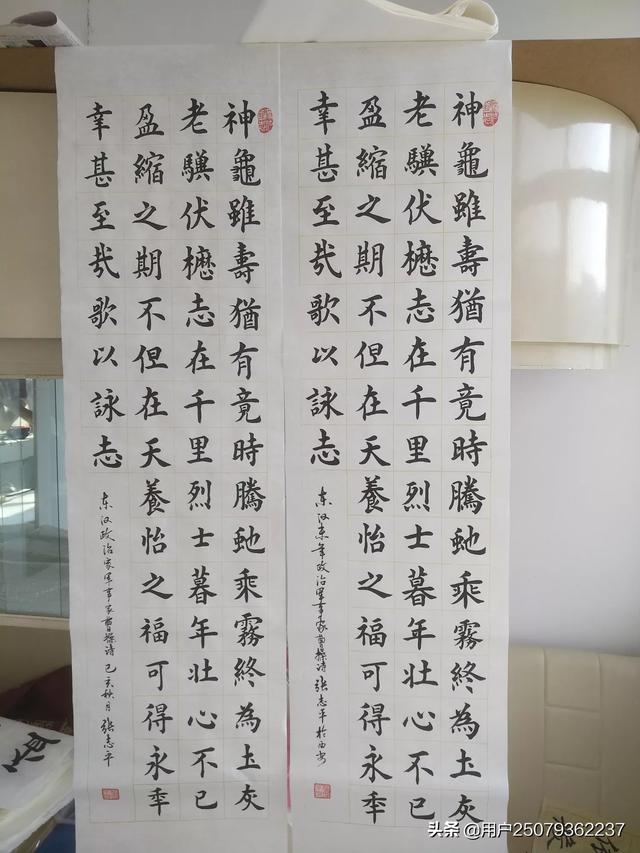 神龜雖壽猶有竟時騰虵乘霧終為土灰
老驥伏櫪志在千里烈士暮年壯心不已
盈縮之期不但在天養怡之福可得永年
幸甚至哉歌以詠志
东汉末年政治军事家曹操诗 张志平於西安
神龜雖壽猶有竟時騰虵乘霧終為土灰
老驥伏櫪志在千里烈士暮年壯心不已
盈縮之期不但在天養怡之福可得永年
幸甚至哉歌以詠志
东汉政治家军事家曹操诗 己亥秋月 张志平
头条 @用户25079362237